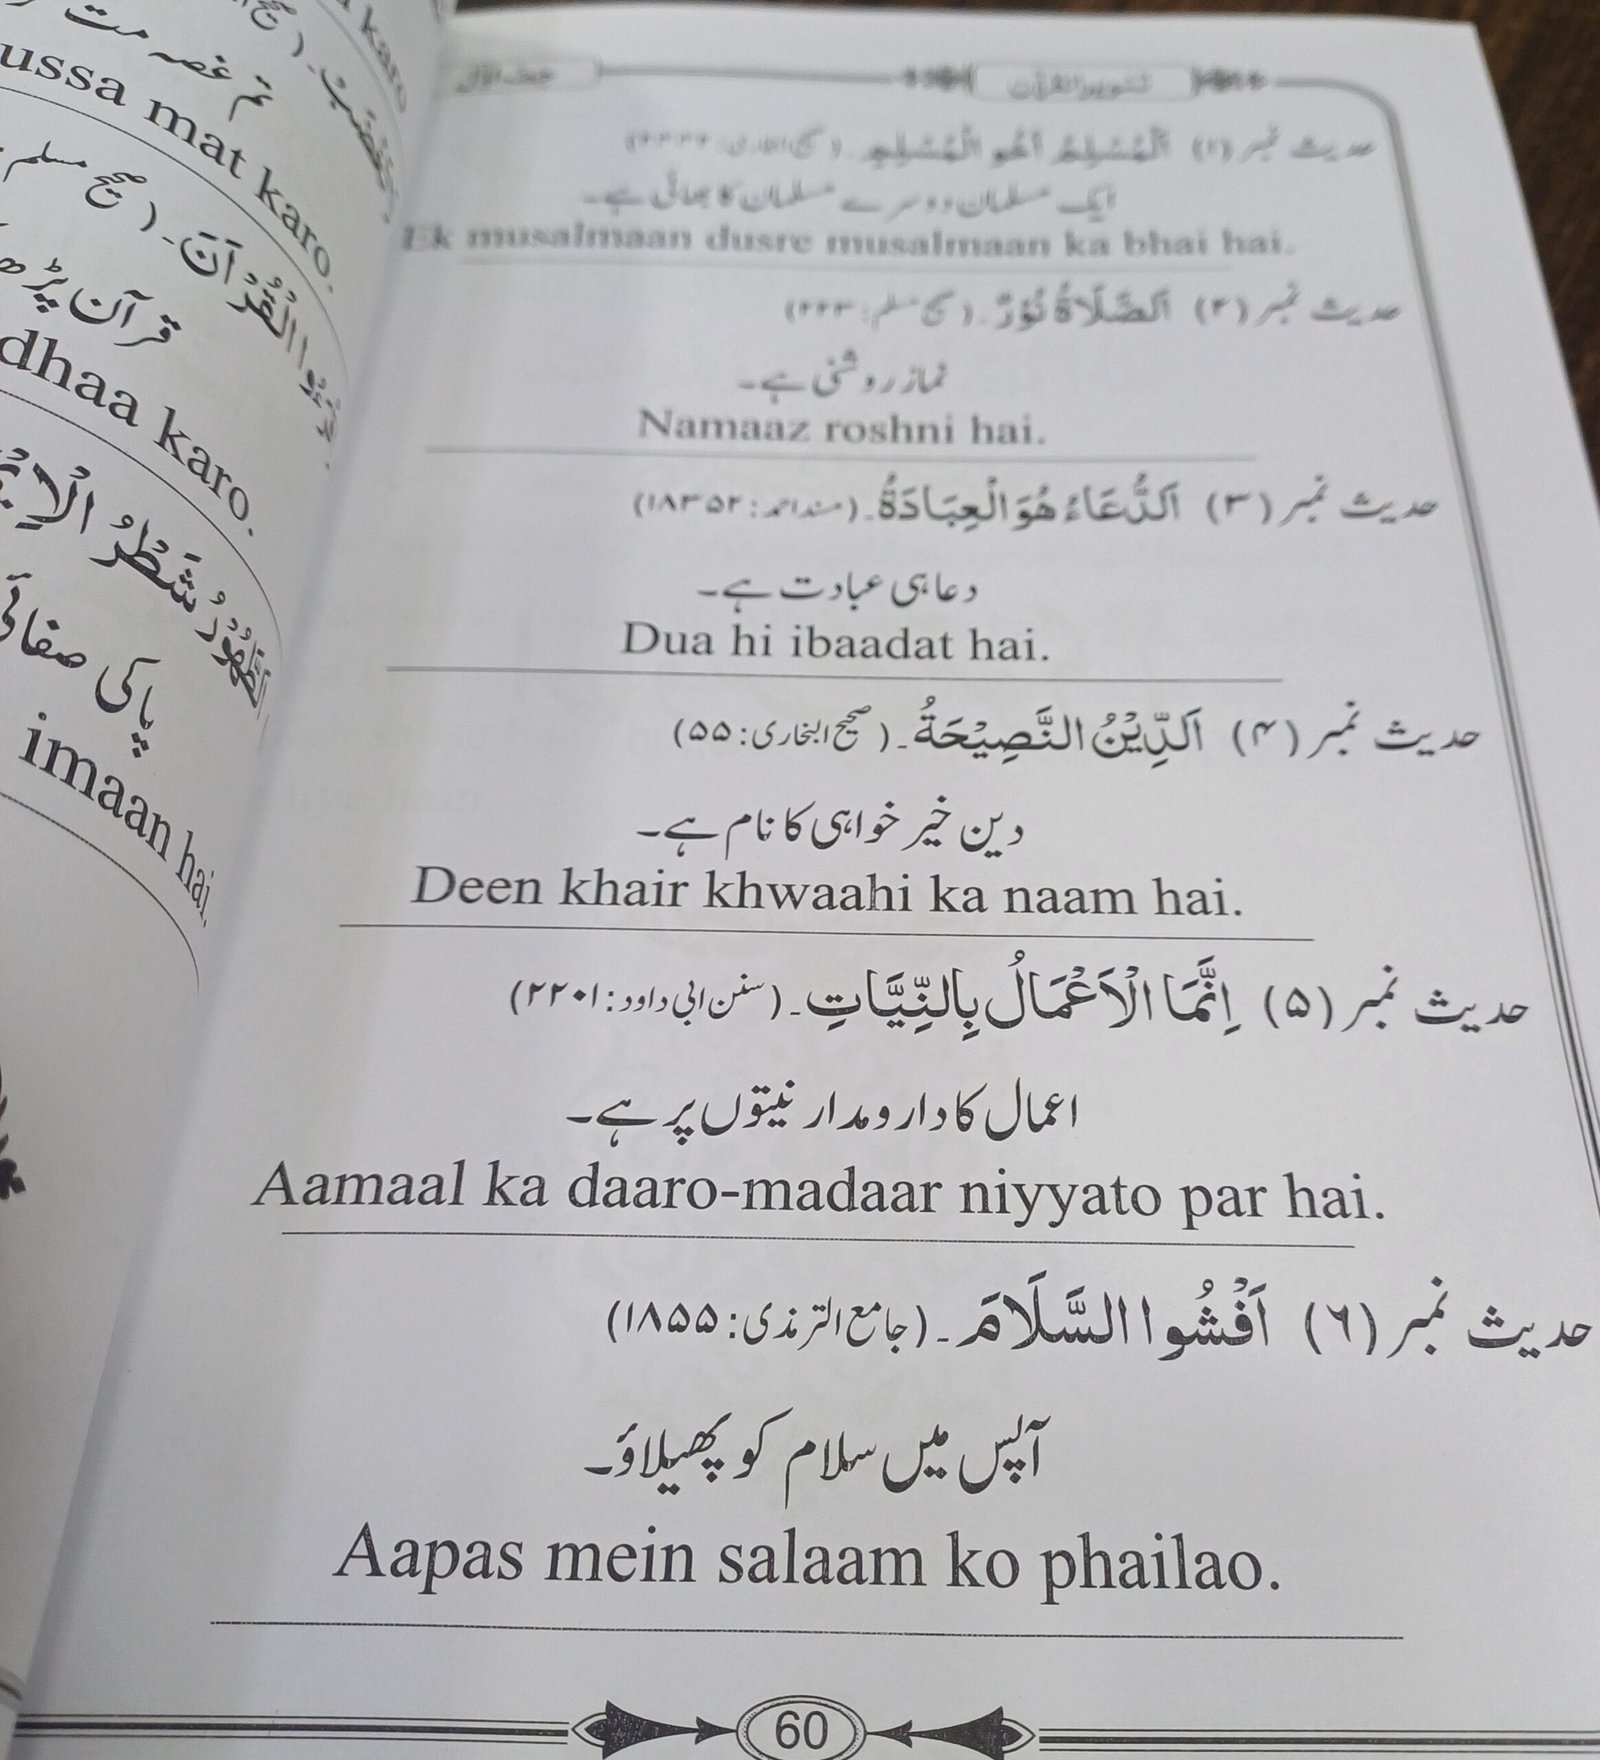 حدیث نمبر (۱) اَلْمُسْلِمُ اَخُو الْمُسْلِمِ۔ (صحیح البخاری:
ایک مسلمان دوسرے مسلمان کا بھائی ہے۔
Ek musalmaan dusre musalmaan ka bhai hai.
حدیث نمبر (۲) اَلصَّلَاةُ نُوْرٌ۔ (صحیح مسلم: ۲۲۳)
نماز روشنی ہے۔
Namaaz roshni hai.
حدیث نمبر (۳) اَلدُّعَاءُ هُوَ الْعِبَادَةُ۔ (مسند احمد: ۱۸۳۵۲)
دعا ہی عبادت ہے۔
Dua hi ibaadat hai.
حدیث نمبر (۴) اَلدِّيْنُ النَّصِيْحَةُ۔ (صحیح البخاری: ۵۵)
دین خیر خواہی کا نام ہے۔
Deen khair khwaahi ka naam hai.
حدیث نمبر (۵) اِنَّمَا الْاَعْمَالُ بِالنِّيَّاتِ۔ (سنن ابی داود: ۲۲۰۱)
اعمال کا دارومدار نیتوں پر ہے۔
Aamaal ka daaro-madaar niyyato par hai.
حدیث نمبر (۶) اَفْشُوا السَّلَامَ۔ (جامع الترمذی: ۱۸۵۵)
آپس میں سلام کو پھیلاؤ۔
Aapas mein salaam ko phailao.
60
تم غصہ مت
mat karo.
الْقُرْاٰنَ۔ (صحیح مسلم
قرآن پڑھ
karo.
اَلطُّهُوْرُ شَطْرُ
پاکی صفائی
imaan hai.